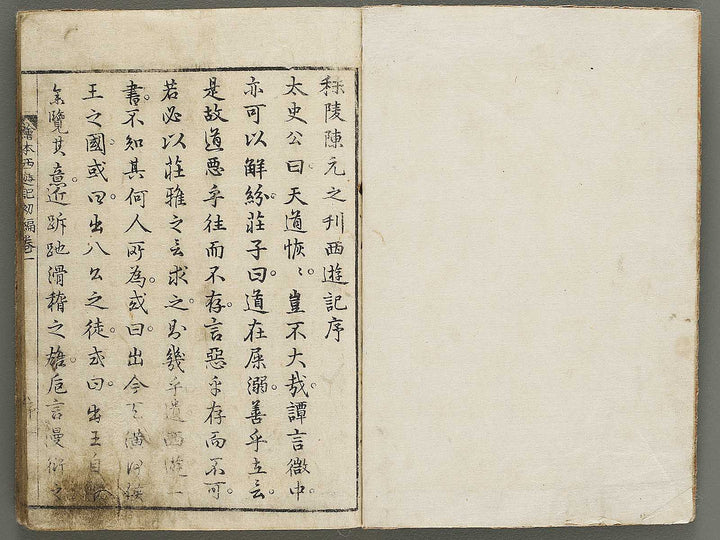 秣陵陳元之刊西遊記序
太史公曰。天道恢〻。豈不大哉。譚言微中。
亦可以解紛。莊子曰。道在屎溺。善乎立言。
是故道悪乎往而不存。言惡乎存而不可。
若必以莊雅之言求之。則幾乎遺西遊一
書。不知其何人所為。或曰。出今天潢何侯
王之國。或曰。出八公之徒。或曰。出王自
余覽其意。近跅跎滑稽之雄。巵言曼衍之
繪本西遊記初編卷一